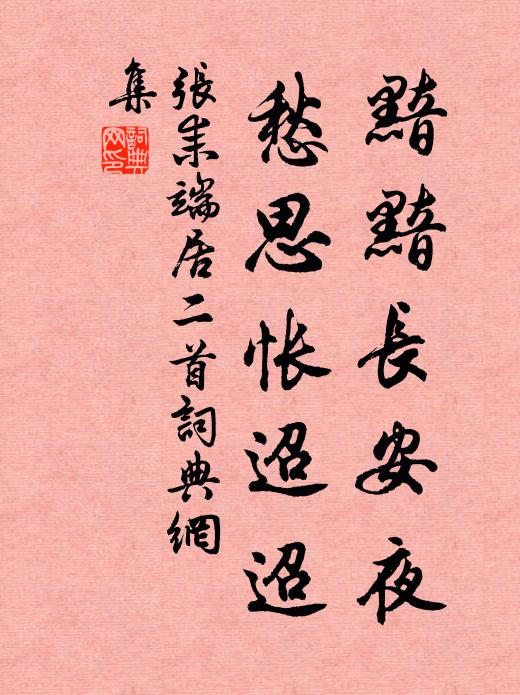 黯黯長安夜
愁思悵迢迢
張耒端居二首詞典網
集
詞典
网印